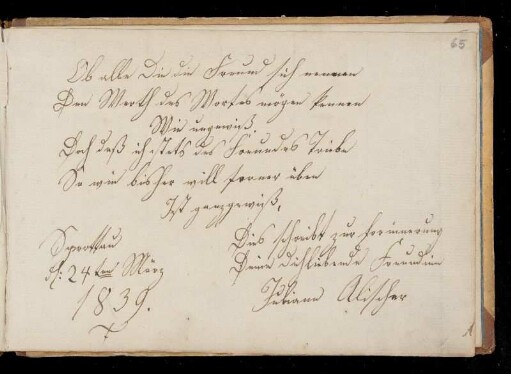 65
Ob alle die die Freund sich nennen
Den Werth des Wortes mögen kennen
Wie ungewiß.
Doch daß ich stets des Freundes Triebe
So wie bisher will ferner üben
Ist ganz gewiß.
Dies schreibt zur Erinnerung
Deine dich liebende Freundin
Juliane Alischer
Sprottau
d: 24ten März
1839.